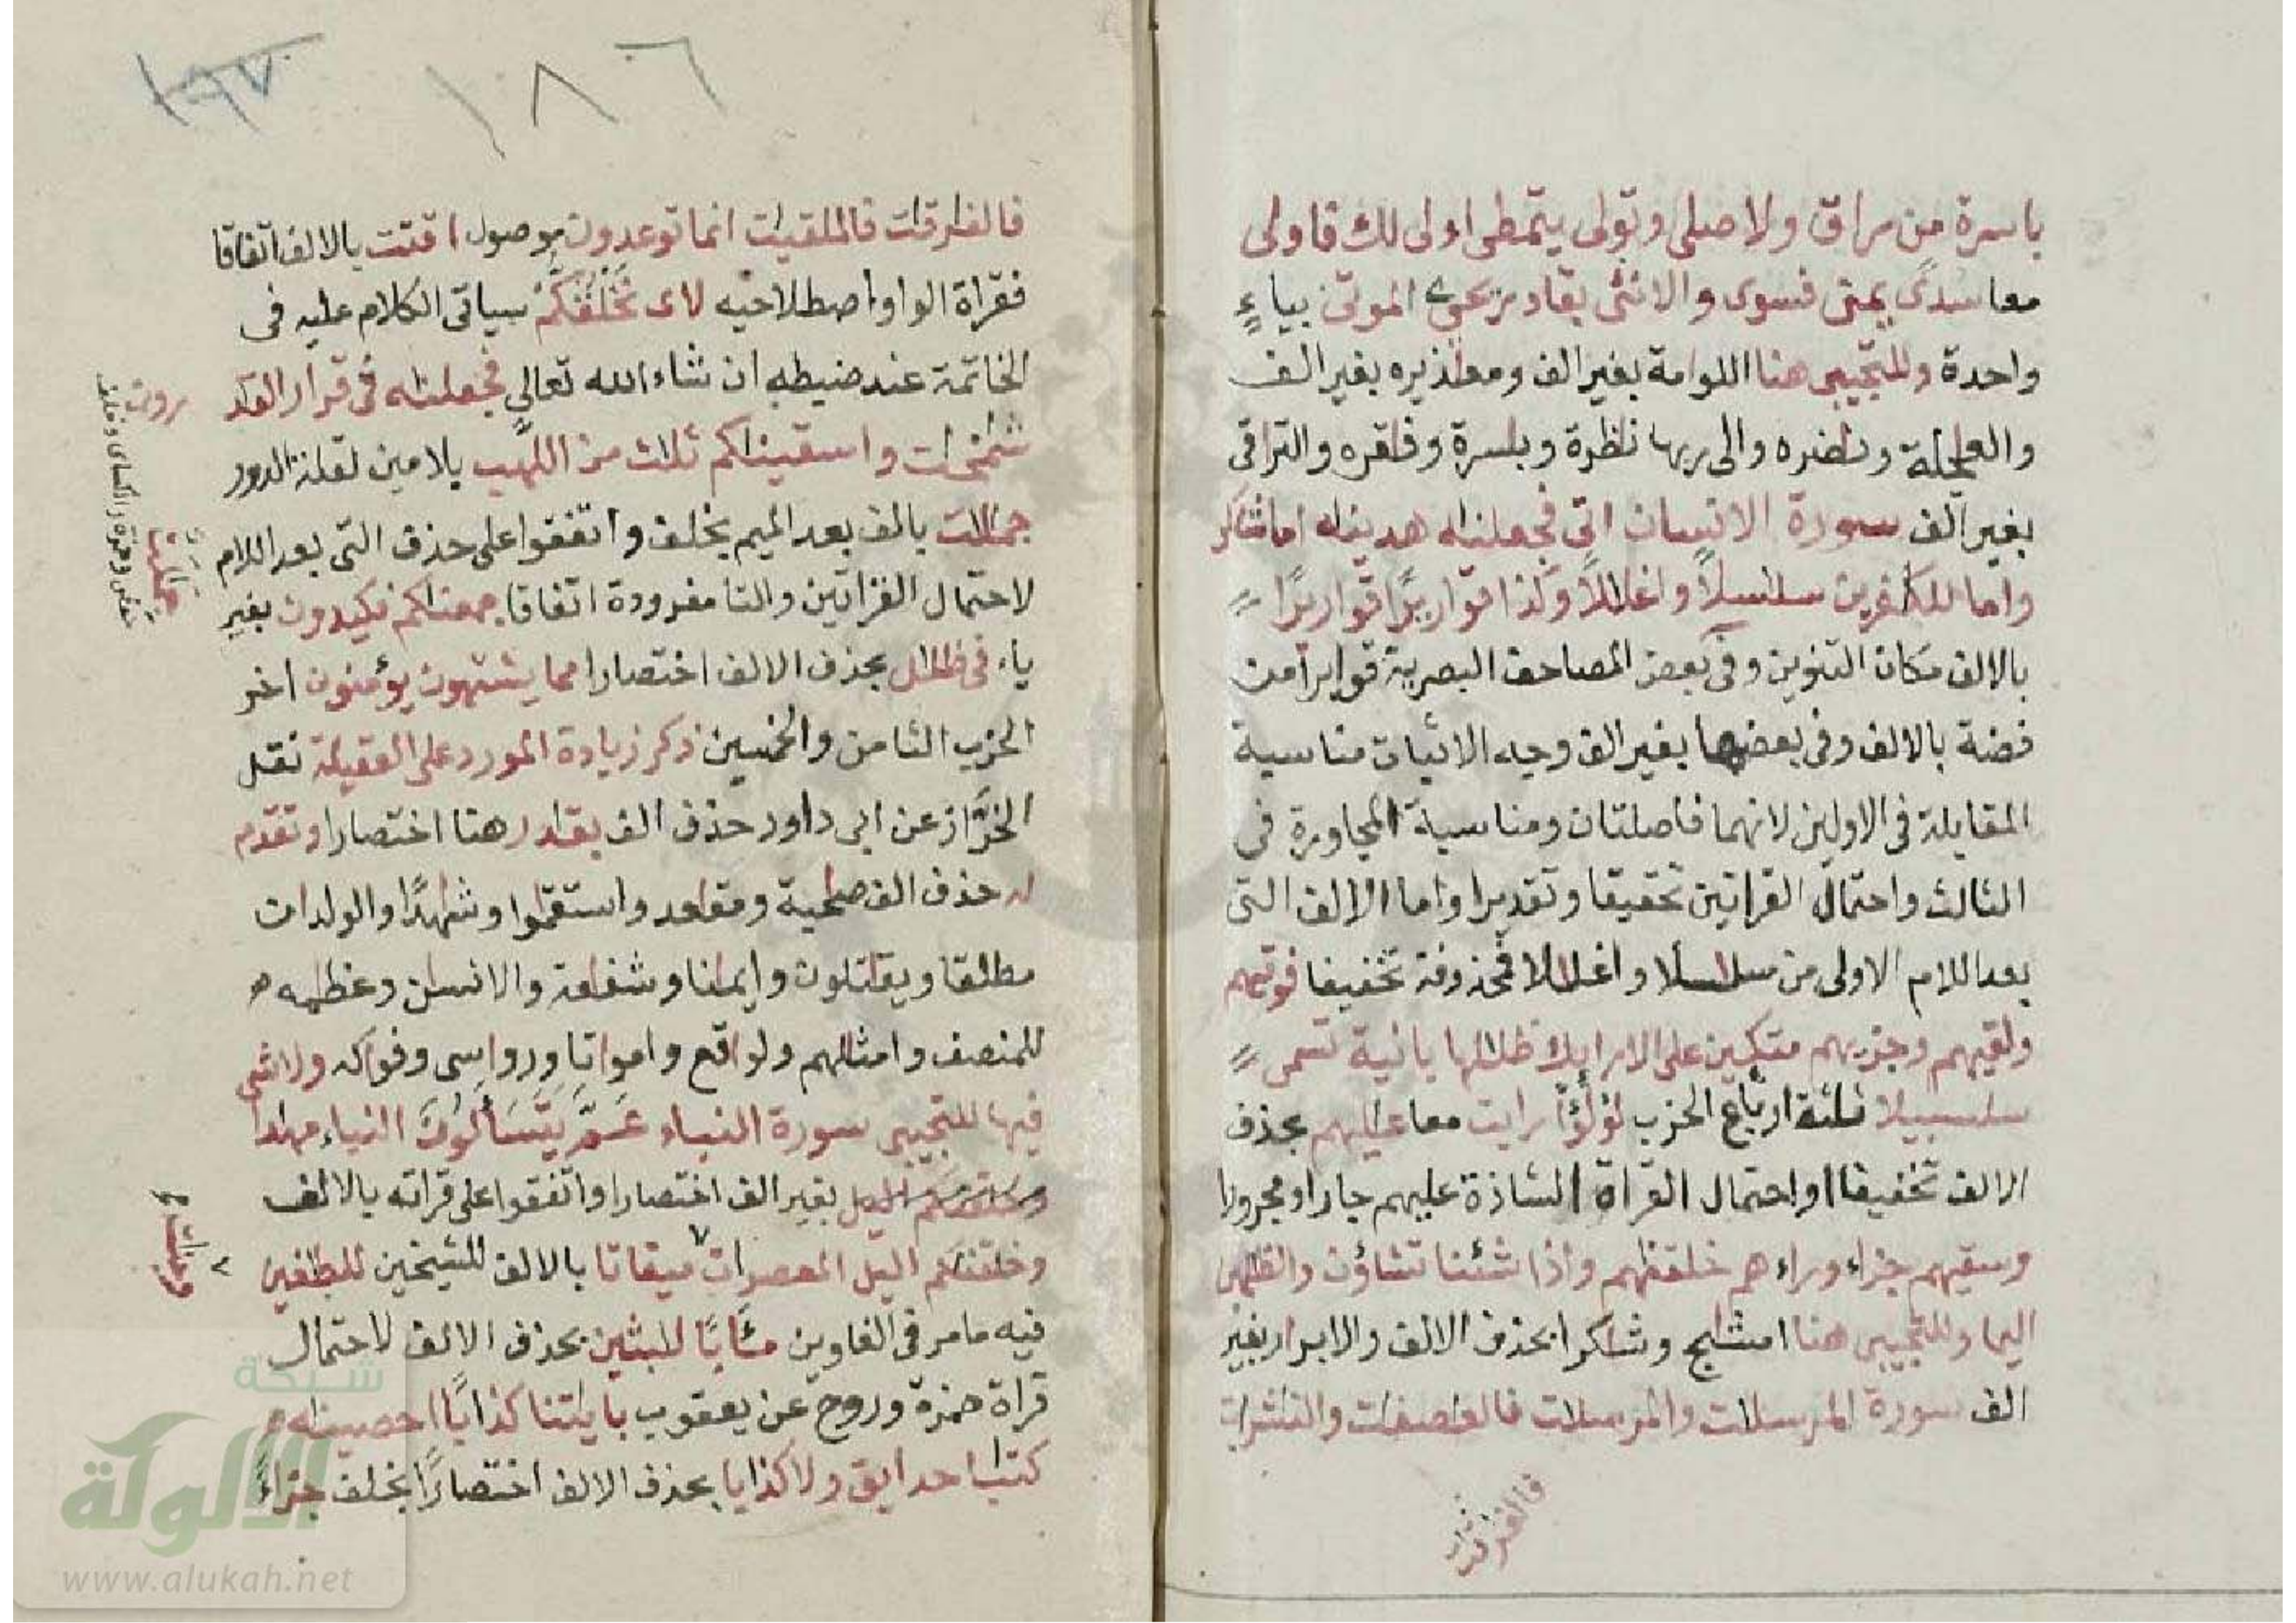 باسرة من راق ولا صلى وتولى يتمطى اولى لك فاولى
معا سدًى يمنى فسوى والانثى بقادر يحي الموتى بياءٍ
واحدة وللتجيبى هنا اللوامة بغير الف ومعاذيره بغير الف
والعاجلة وناضره والى ربها ناظرة وباسرة وفاقره والتراقى
بغير الف سورة الانسان اتى فجعلناه هديناه اما شاكرا
واما للكفرين سلسلاً واغللاً وكذا قواريرًا قواريرًا
بالالف مكان التنوين وفى بعض المصاحف البصرية قواريرا من
فضة بالالف وفى بعضها بغير الف وجه الاثبات مناسبة
المقابلة فى الاولين لانهما فاصلتان ومناسبة المجاورة فى
الثالث واحتمال القراتين تحقيقا وتقديرا واما الالف التى
بعد اللام الاولى من سلاسلا واغلالا فمحذوفة تخفيفا فوقيهم
ولقيهم وجزيهم متكين على الارايك ظللها بانية تسمى
سلسبيلا ثلثة ارباع الحزب لؤلؤًا رايت معا عليهم بحذف
الالف تخفيفا او احتمال القراة الشاذة عليهم جارا ومجرورا
وسقيهم جزاء وراءهم خلقنهم واذا شئنا تشاؤن والظلمين
اليما وللتجيبى هنا امشاج وشاكرا بحذف الالف والابرار بغير
الف سورة المرسلات والمرسلات فالعصفت والنشرات
فالفرقت
١٨٦
١٩٧
فالفرقات فالملقيت انما توعدون موصول اقتت بالالف اتفاقا
فقراة الواو اصطلاحيه لاى نَخْلُقكُّمْ سياتى الكلام عليه فى
الخاتمة عند ضبطه ان شاء الله تعالى فجعلناه فى قرار القدرون
شمخات واسقيناكم ثلاث من اللهب بلامين لقلة الدور
جمالات بالف بعد الميم بخلف واتفقوا على حذف التى بعد اللام
لاحتمال القراتين والتا مفرودة اتفاقا جمعناكم فكيدون بغير
ياء فى ظلال بحذف الالف اختصارا مما يشتهون يؤمنون اخر
الحزب الثامن والخمسين ذكر زيادة المورد على العقيلة نقل
الخرَّاز عن ابى داود حذف الف بقادر هنا اختصارا وتقدم
له حذف الف صاحبة ومقاعد واستقاموا وشاهدًا والولدان
مطلقا ويقاتلون وايماننا وشفاعة والانسان وعظامه
للمنصف وامثالهم ولواقع وامواتا ورواسى وفواكه ولا شى
فيها للتجيبى سورة النباء عَمَّ يَتَسَألُونَ النباء مهادا
وخلقنكم اليل بغير الف اختصارا واتفقوا على قراته بالالف
وخلقنكم اليل المعصرات ميقاتا بالالف للشيخين للطغين
فيه مامر فى الغاوين مئابًا للبثين بحذف الالف لاحتمال
قراة حمزة وروح عن يعقوب باياتنا كذابًا احصيناه
كتبا حدايق ولا كذابا بحذف الالف اختصارًا بخلف جزاءً
شبكة
الألوكة
www.alukah.net